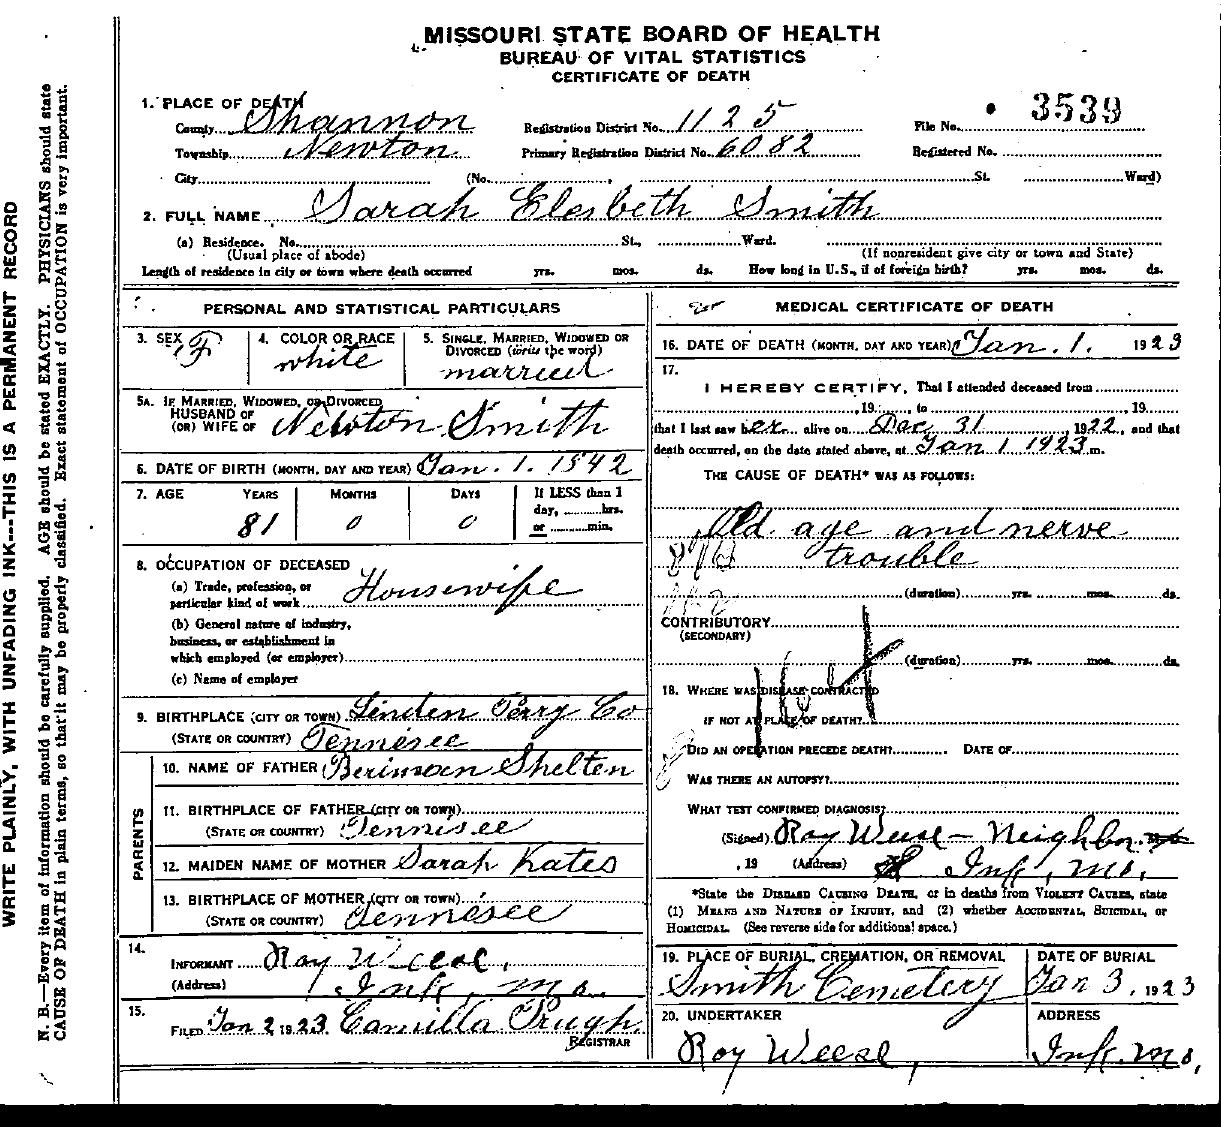 MISSOURI STATE BOARD OF HEALTH
BUREAU OF VITAL STATISTICS
CERTIFICATE OF DEATH
WRITE PLAINLY, WITH UNFADING INK---THIS IS A PERMANENT RECORD
N. B.—Every item of information should be carefully supplied. AGE should be stated EXACTLY. PHYSICIANS should state
CAUSE OF DEATH in plain terms, so that it may be properly classified. Exact statement of OCCUPATION is very important.
1. PLACE OF DEATH
County Shannon Registration District No. 1125 File No. 3539
Township Newton Primary Registration District No. 6082 Registered No.
City (No. , St. Ward)
2. FULL NAME Sarah Elesbeth Smith
(a) Residence. No. St., Ward.
(Usual place of abode) (If nonresident give city or town and State)
Length of residence in city or town where death occurred yrs. mos. ds. How long in U.S., if of foreign birth? yrs. mos. ds.
PERSONAL AND STATISTICAL PARTICULARS
3. SEX F
4. COLOR OR RACE white
5. SINGLE, MARRIED, WIDOWED OR
DIVORCED (write the word)
married
5A. IF MARRIED, WIDOWED, OR DIVORCED
HUSBAND OF
(OR) WIFE OF Newton Smith
6. DATE OF BIRTH (MONTH, DAY AND YEAR) Jan. 1. 1842
7. AGE YEARS MONTHS DAYS If LESS than 1
day, hrs.
81 0 0 or min.
8. OCCUPATION OF DECEASED
(a) Trade, profession, or
particular kind of work Housewife
(b) General nature of industry,
business, or establishment in
which employed (or employer)
(c) Name of employer
9. BIRTHPLACE (CITY OR TOWN) Linden Perry Co
(STATE OR COUNTRY) Tennesee
PARENTS
10. NAME OF FATHER Berimoen Shelten
11. BIRTHPLACE OF FATHER (CITY OR TOWN)
(STATE OR COUNTRY) Tennisee
12. MAIDEN NAME OF MOTHER Sarah Kates
13. BIRTHPLACE OF MOTHER (CITY OR TOWN)
(STATE OR COUNTRY) Tennesee
14.
INFORMANT Roy Weese,
(Address) Ink, Mo.
15.
FILED Jan 2, 1923 Camilla Pugh
REGISTRAR
MEDICAL CERTIFICATE OF DEATH
16. DATE OF DEATH (MONTH, DAY AND YEAR) Jan. 1. 1923
17.
I HEREBY CERTIFY, That I attended deceased from
, 19 , to 19
that I last saw her alive on Dec 31 1922, and that
death occurred, on the date stated above, at Jan 1 1923 m.
THE CAUSE OF DEATH* WAS AS FOLLOWS:
Old age and nerve
trouble
(duration) yrs. mos. ds.
CONTRIBUTORY
(SECONDARY)
(duration) yrs. mos. ds.
164
18. WHERE WAS DISEASE CONTRACTED
IF NOT AT PLACE OF DEATH?
DID AN OPERATION PRECEDE DEATH? DATE OF
WAS THERE AN AUTOPSY?
WHAT TEST CONFIRMED DIAGNOSIS?
(Signed) Roy Weese - Neighbor.
, 19 (Address) Ink, Mo.
*State the DISEASE CAUSING DEATH, or in deaths from VIOLENT CAUSES, state
(1) MEANS AND NATURE OF INJURY, and (2) whether ACCIDENTAL, SUICIDAL, or
HOMICIDAL. (See reverse side for additional space.)
19. PLACE OF BURIAL, CREMATION, OR REMOVAL DATE OF BURIAL
Smith Cemetery Jan 3, 1923
20. UNDERTAKER ADDRESS
Roy Weese, Ink. Mo,